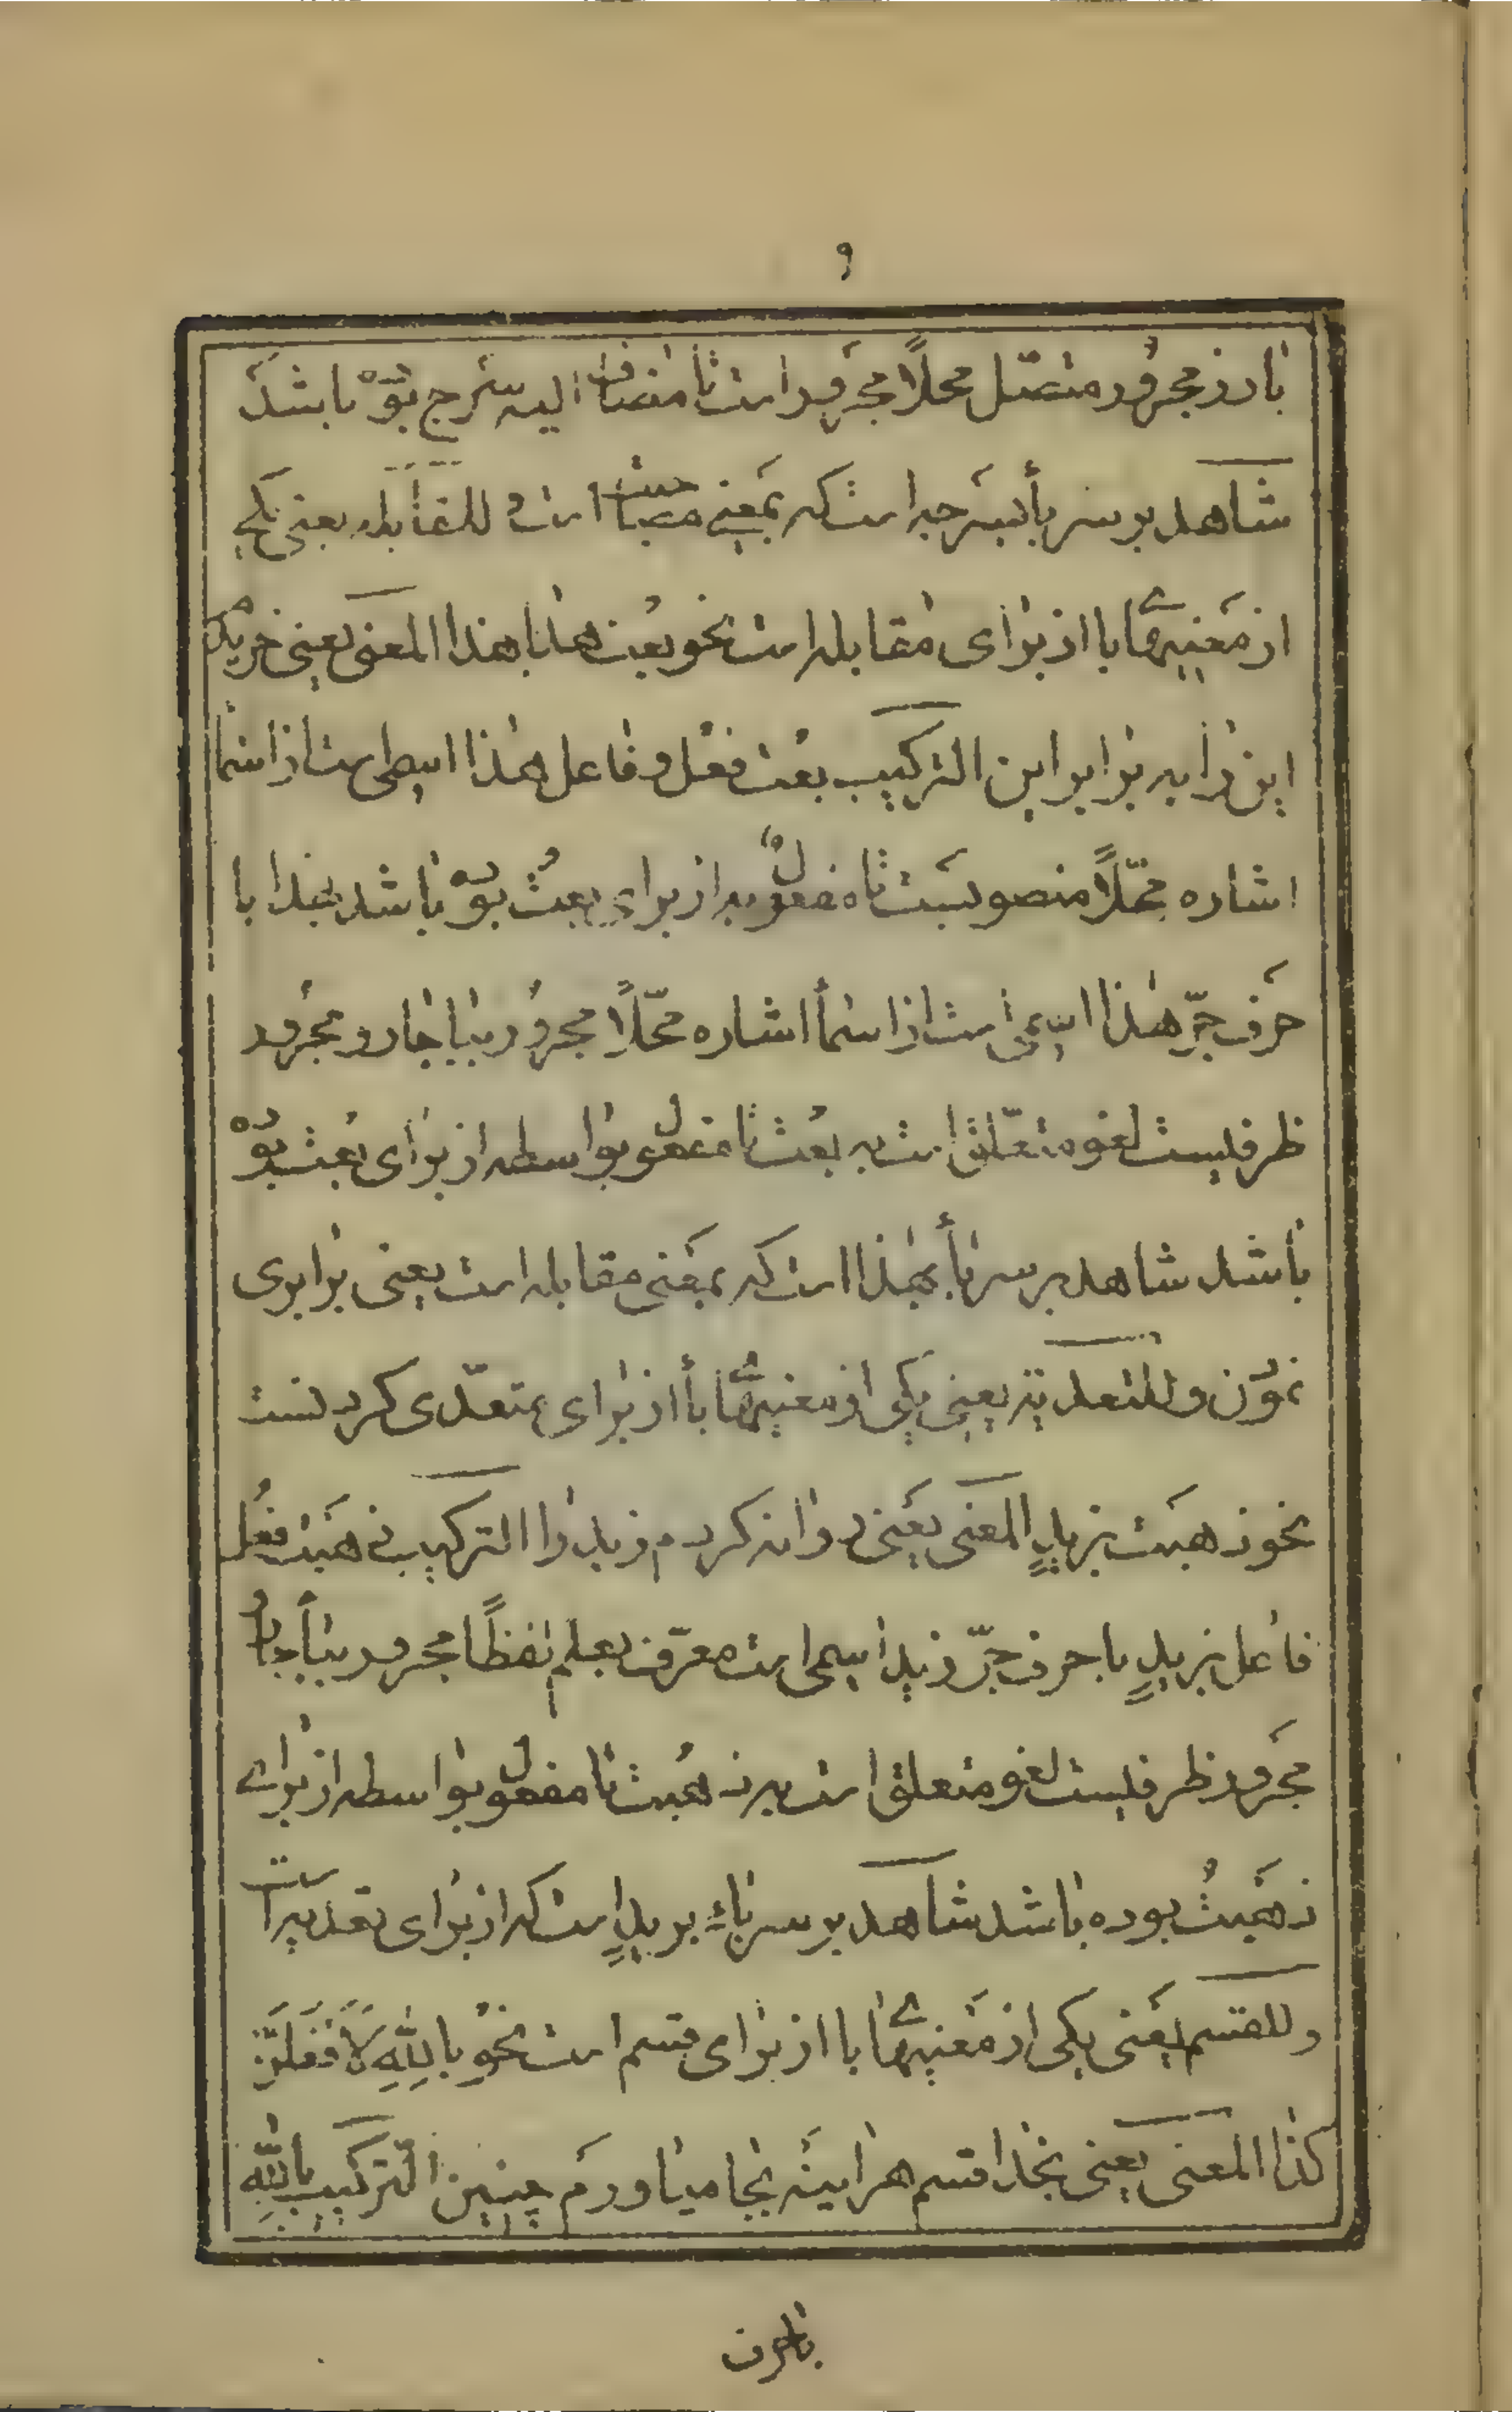 ۹
بارز مجرور متصل محلاً مجرور است تا مضاف الیه سرج بوده باشد
شاهد بر سر بأ بسرجه است که بمعنی مصاحبت است و للمقابله یعنی یکی
از معنیهای با از برای مقابله است نحو بعت هذا بهذا المعنی یعنی خریدم
این را به برابر این الترکیب بعت فعل و فاعل هذا اسمی است از اسمأ
اشاره محلاً منصوبست تا مفعول به از برای بعت بوده باشد بهذا با
حرف جرّ هذا اسمی است از اسمأ اشاره محلاً مجرور ببا جار و مجرور
ظرفیست لغو متعلق است به بعت تا مفعول بواسطه از برای بعت بوده
باشد شاهد بر سر بأ بهذا است که بمعنی مقابله است یعنی برابری
نمودن و للتعدیة یعنی یکی از معنیهای بأ از برای متعدّی کردنست
نحو ذهبت بزیدٍ المعنی یعنی روانه کردم زید را الترکیب ذهبت فعل
فاعل بزیدٍ با حرف جرّ زید اسمی است معرّف بعلم لفظاً مجرور ببأ جار
مجرور ظرفیست لغو متعلق است به ذهبت تا مفعول بواسطه از برای
ذهبت بوده باشد شاهد بر سر باء بزیدٍ است که از برای تعدیه است
و للقسم یعنی یکی از معنیهای با از برای قسم است نحو باللهِ لاَفعَلَنَّ
کذا المعنی یعنی بخدا قسم هراینه بجا میاورم چنین الترکیب باللهِ
باحرف